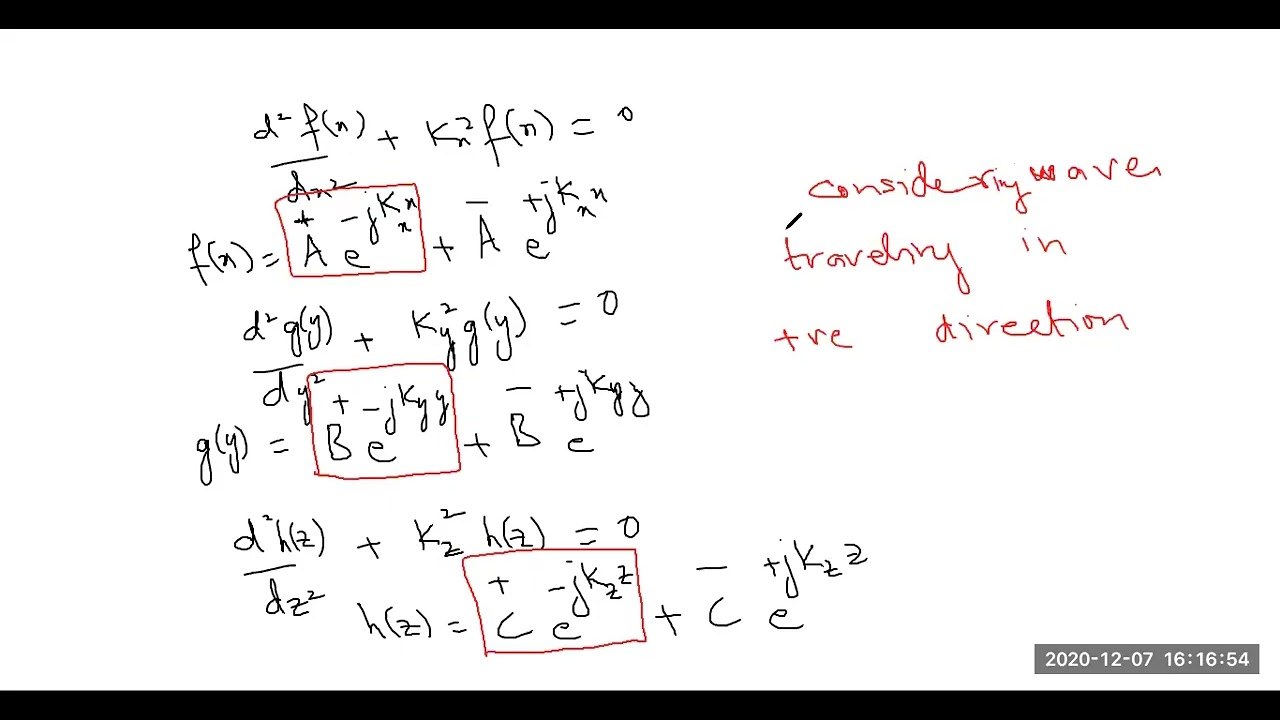 d² f(x) / dx² + Kx² f(x) = 0
f(x) = A⁺ e^(-jKx x) + A⁻ e^(+jKx x)
d² g(y) / dy² + Ky² g(y) = 0
g(y) = B⁺ e^(-jKy y) + B⁻ e^(+jKy y)
d² h(z) / dz² + Kz² h(z) = 0
h(z) = C⁺ e^(-jKz z) + C⁻ e^(+jKz z)
considering wave
traveling in
+ve direction
2020-12-07 16:16:54